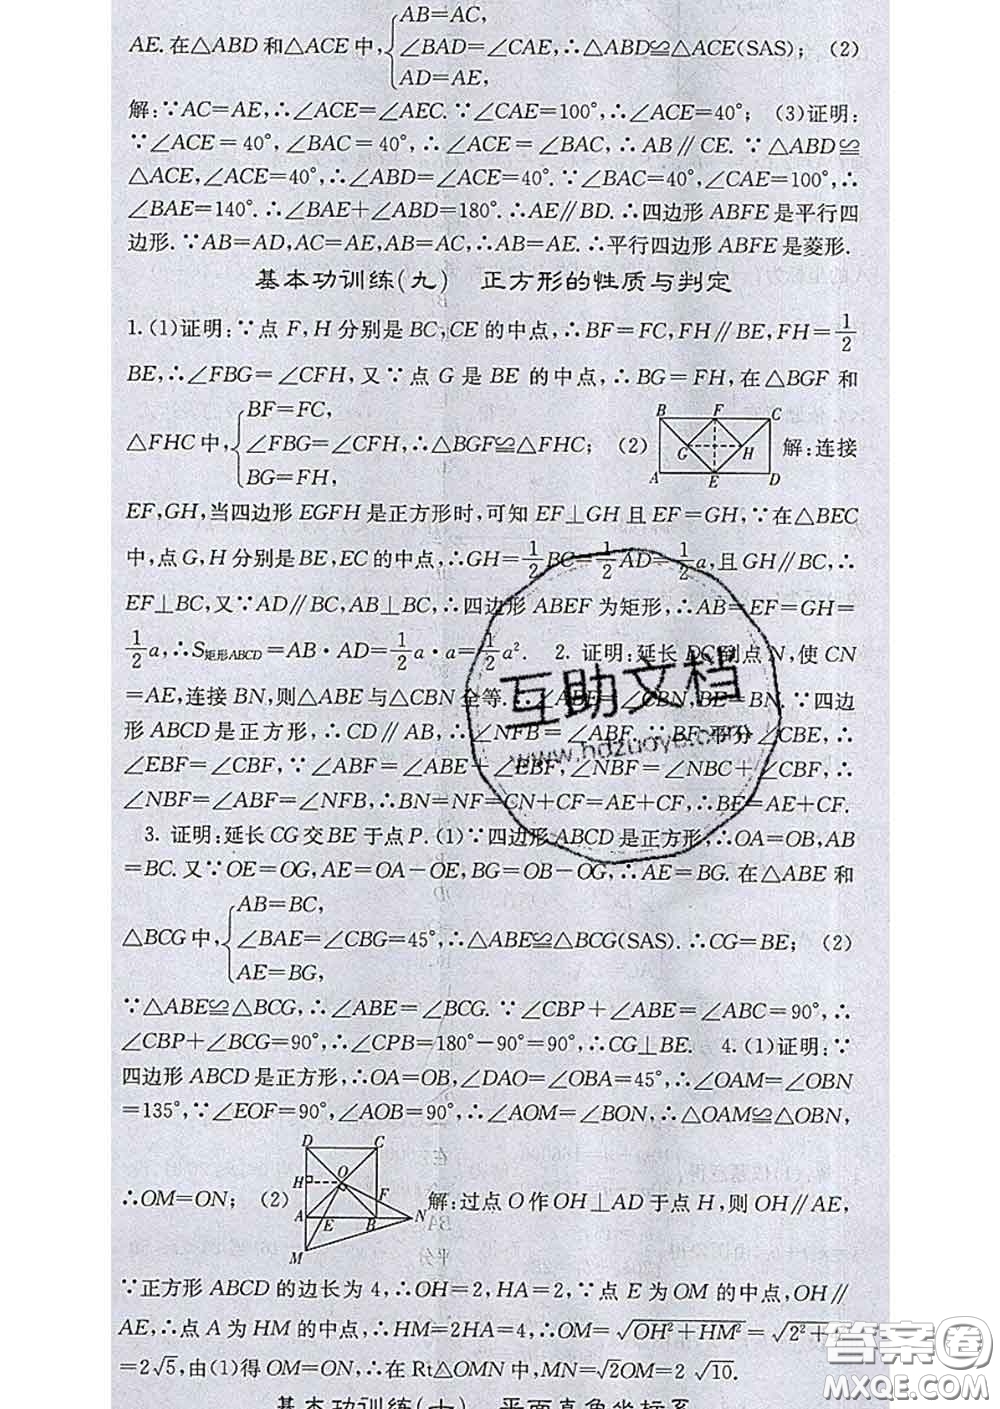 AB=AC,
AE.在△ABD和△ACE中,{∠BAD=∠CAE,∴△ABD≌△ACE(SAS); (2)
AD=AE,
解:∵AC=AE,∴∠ACE=∠AEC.∵∠CAE=100°,∴∠ACE=40°; (3)证明:
∵∠ACE=40°,∠BAC=40°,∴∠ACE=∠BAC,∴AB∥CE.∵△ABD≌
△ACE,∠ACE=40°,∴∠ABD=∠ACE=40°.∵∠BAC=40°,∠CAE=100°,∴
∠BAE=140°.∴∠BAE+∠ABD=180°.∴AE∥BD.∴四边形ABFE是平行四
边形.∵AB=AD,AC=AE,AB=AC,∴AB=AE.∴平行四边形ABFE是菱形.
基本功训练(九) 正方形的性质与判定
1.(1)证明:∵点F,H分别是BC,CE的中点,∴BF=FC,FH∥BE,FH=1/2
BE,∴∠FBG=∠CFH,又∵点G是BE的中点,∴BG=FH,在△BGF和
BF=FC,
△FHC中,{∠FBG=∠CFH,∴△BGF≌△FHC; (2) 解:连接
BG=FH,
B F C
G H
A E D
EF,GH,当四边形EGFH是正方形时,可知EF⊥GH且EF=GH,∵在△BEC
中,点G,H分别是BE,EC的中点,∴GH=1/2BC=1/2AD=1/2a,且GH∥BC,∴
EF⊥BC,又∵AD∥BC,AB⊥BC,∴四边形ABEF为矩形,∴AB=EF=GH=
1/2a,∴S矩形ABCD=AB·AD=1/2a·a=1/2a². 2. 证明:延长DC到点N,使CN
=AE,连接BN,则△ABE与△CBN全等.∴∠ABE=∠CBN,BE=BN.∵四边
形ABCD是正方形,∴CD∥AB,∴∠NFB=∠ABF.∵BF平分∠CBE,∴
∠EBF=∠CBF,∵∠ABF=∠ABE+∠EBF,∠NBF=∠NBC+∠CBF,∴
∠NBF=∠ABF=∠NFB,∴BN=NF=CN+CF=AE+CF,∴BE=AE+CF.
3. 证明:延长CG交BE于点P.(1)∵四边形ABCD是正方形,∴OA=OB,AB
=BC.又∵OE=OG,AE=OA-OE,BG=OB-OG,∴AE=BG.在△ABE和
AB=BC,
△BCG中,{∠BAE=∠CBG=45°,∴△ABE≌△BCG(SAS).∴CG=BE; (2)
AE=BG,
∵△ABE≌△BCG,∴∠ABE=∠BCG.∵∠CBP+∠ABE=∠ABC=90°,∴
∠CBP+∠BCG=90°,∴∠CPB=180°-90°=90°,∴CG⊥BE. 4.(1)证明:∵
四边形ABCD是正方形,∴OA=OB,∠DAO=∠OBA=45°,∴∠OAM=∠OBN
=135°,∵∠EOF=90°,∠AOB=90°,∴∠AOM=∠BON,∴△OAM≌△OBN,
D C
H O F
∴OM=ON; (2) 解:过点O作OH⊥AD于点H,则OH∥AE,
A E B N
M
∵正方形ABCD的边长为4,∴OH=2,HA=2,∵点E为OM的中点,OH∥
AE,∴点A为HM的中点,∴HM=2HA=4,∴OM=√(OH²+HM²)=√(2²+
=2√5,由(1)得OM=ON,∴在Rt△OMN中,MN=√2OM=2√10.
基本功训练(十) 平面直角坐标系
互助文档
www.hdzuoye.com
答案圈
MXQE.COM